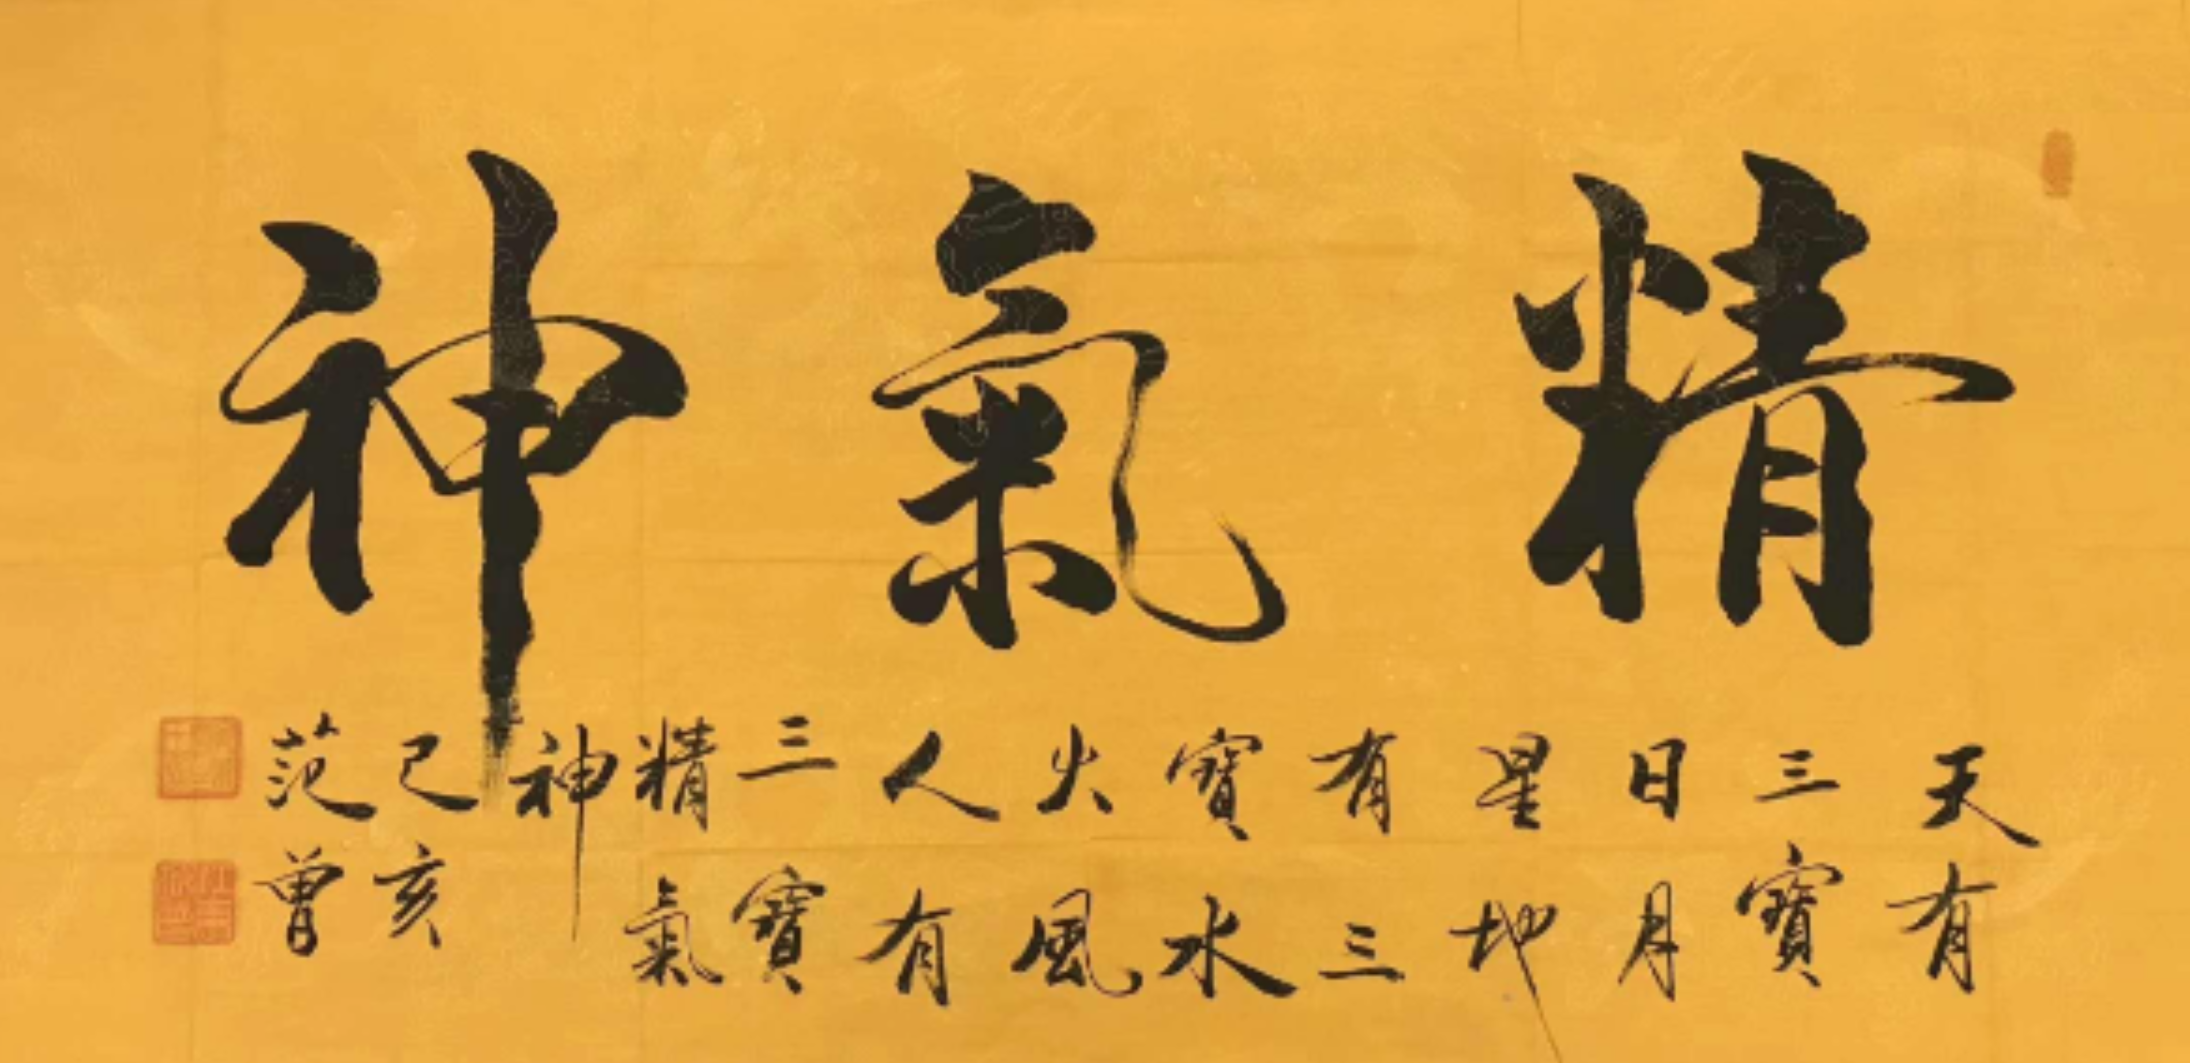 精氣神
天有
三寶
日月
星地
有三
寶水
火風
人有
三寶
精氣
神
己亥
范曾